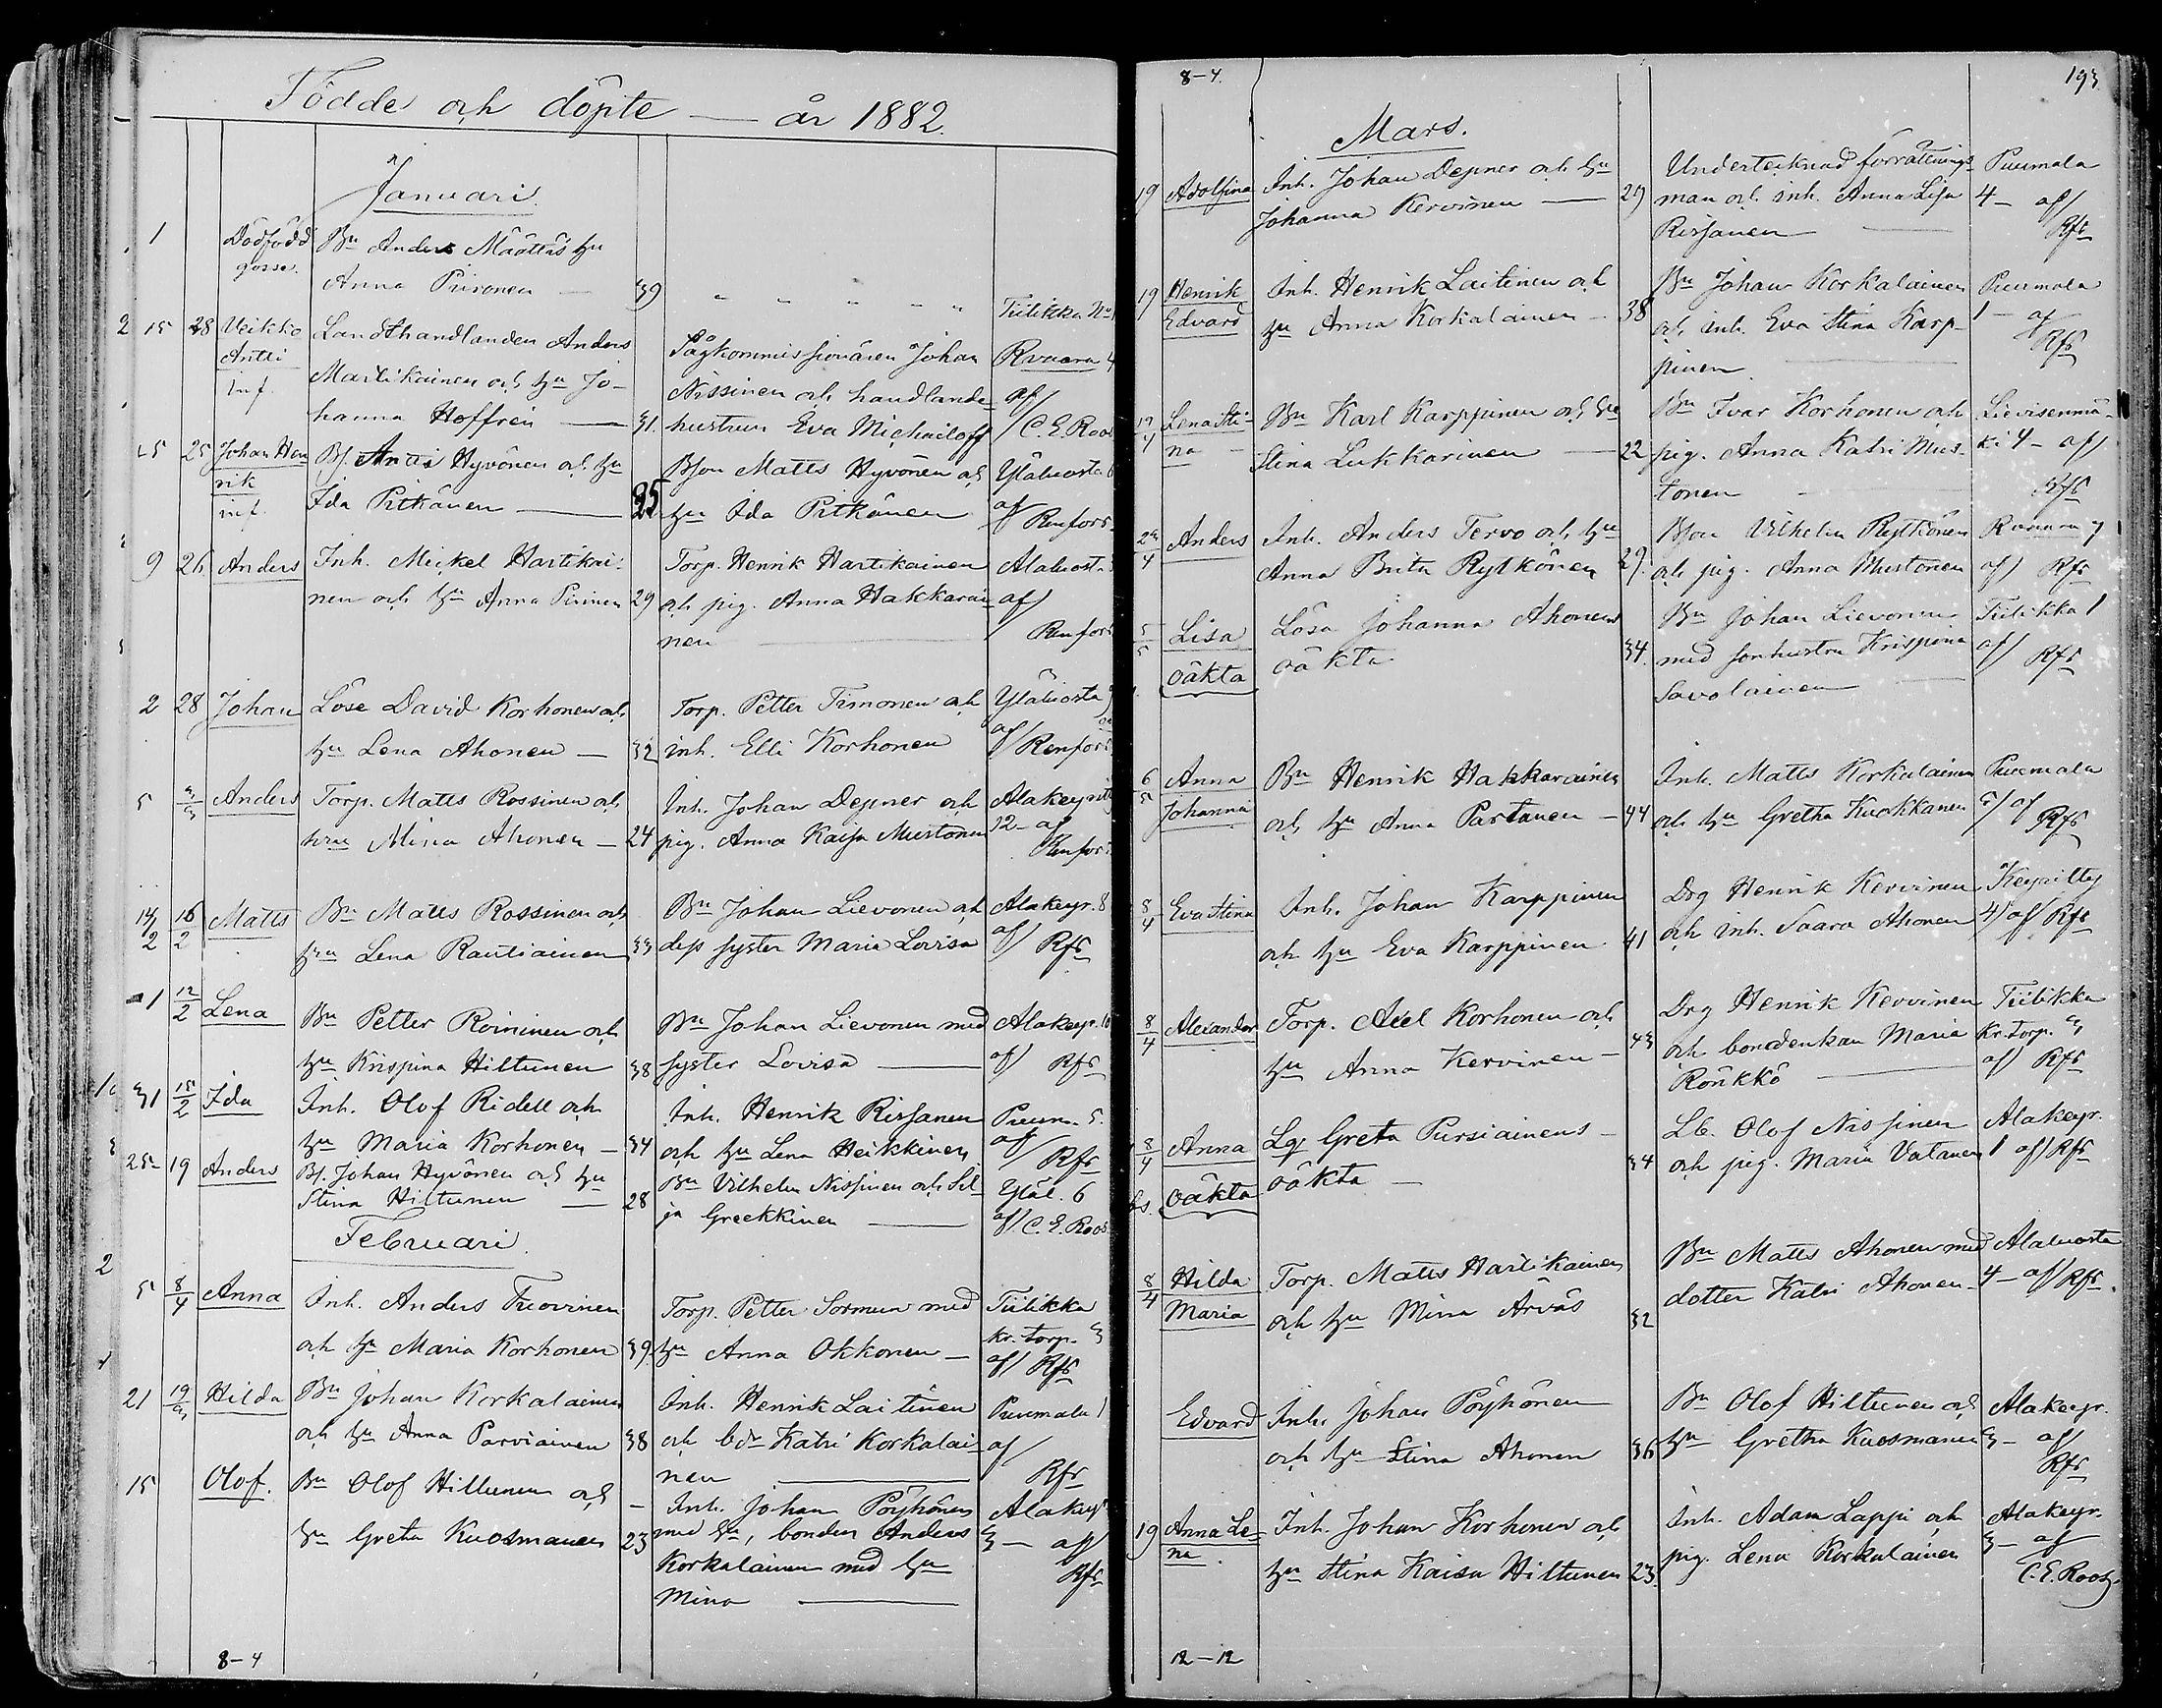 Födde och döpte — år 1882.
Januari.
1 Dödfödd Bn Anders Määttäs hu
gosse. Anna Piironen — 39 " " " " " Tiilikka No 1
15 28 Veikko Landthandlanden Anders Sågkommissionären Johan Rvaara 4
Antti Martikainen och hu Jo- Nissinen och handlande- af
inf. hanna Hoffrén — 31. hustrun Eva Michailoff C. E. Roos
25 Johan Hen Bs. Antti Hyvönen och hu Bson Matts Hyvönen och Yläluosta 6
rik Ida Pitkänen — 25 hu Ida Pitkänen af
inf. Renfors.
9 26 Anders Inh. Mickel Hartikai- Torp. Henrik Hartikainen Alaluosta
nen och hu Anna Piirinen 29 och pig. Anna Hakkarai- af
nen — Renfors
2 28 Johan Löse David Korhonen och Torp. Petter Timonen och Yläluosta
hu Lena Ahonen — 32 inh. Elli Korhonen af Renfors
5 Anders Torp. Matts Rossinen och Inh. Johan Depner och Alakeyritty
hu Mina Ahonen — 24 pig. Anna Kaisa Mustonen 12 - af
Renfors
14/2 16/2 Matts Bn Matts Rossinen och Bn Johan Lievonen och Alakeyr. 8
hu Lena Rautiainen 33 dess syster Maria Lovisa af Rfs
1 12/2 Lena Bn Petter Roininen och Bn Johan Lievonen med Alakeyr. 10
hu Krispina Hiltunen 38 syster Lovisa — af Rfs
31 15/2 Ida Inh. Olof Ridell och Inh. Henrik Rissanen Puum. 5.
hu Maria Korhonen — 34 och hu Lena Heikkinen af Rfs
25 19 Anders Bs. Johan Hyvönen och hu Bn Vilhelm Nissinen och Sil- Yläl. 6
Stina Hiltunen — 28 ja Greekkinen — af C. E. Roos
Februari.
5 8/4 Anna Inh. Anders Truovinen Torp. Petter Sormun med Tiilikka
och hu Maria Korhonen 39. hu Anna Okkonen — kr. torp. 3
af Rfs
21 19/3 Hilda Bn Johan Korkalainen Inh. Henrik Laitinen Puumala 1
och hu Anna Parviainen 38 och bdr Katri Korkalai- af
nen — Rfs
15 Olof. Bn Olof Hiltunen och Inh. Johan Pöyhönen Alakeyr
hu Greta Kuosmanen 23 med hu, bonden Anders 3 - af
Korkalainen med hu Rfs
Mina —
8-4
8-4. 193
Mars.
19 Adolfina Inh. Johan Depner och hu Undertecknad förrättnings- Puumala
Johanna Kervinen — 29 man och inh. Anna Lisa 4 - af
Rissanen — Rfs
19 Henrik Inh. Henrik Laitinen och Bn Johan Korkalainen Puumala
Edvard hu Anna Korkalainen - 38 och inh. Eva Stina Karp- 1 - af
pinen. — Rfs
Lena Sti- Bn Karl Karppinen och hu Bn Ivar Korhonen och Lievisenmä-
na - Stina Lukkarinen — 22 pig. Anna Katri Mus- ki 4 - af
tonen — Rfs
Anders Inh. Anders Tervo och hu Bson Vilhelm Rytkönen Rvaara 7
Anna Brita Rytkönen 29. och pig. Anna Mustonen af Rfs
5/5 Lisa Lösa Johanna Ahonens Bn Johan Lievonen Tiilikka 1
oäkta oäkta. 34. med sonhustru Krispina af Rfs
Savolainen —
6/5 Anna Bn Henrik Hakkarainen Inh. Matts Korkalainen Puumala
Johanna och hu Anna Partanen — 44 och hu Gretha Kuokkanen 5 af Rfs
8/4 Eva Stina Inh. Johan Karppinen Drg Henrik Kervinen Keyritty
och hu Eva Karppinen 41 och inh. Saara Ahonen 4 af Rfs
8/4 Alexander Torp. Axel Korhonen och Drg Henrik Kervinen Tiilikka
hu Anna Kervinen — 43 och bondenkan Maria kr. torp. 3
Rönkkö — af Rfs
8/4 Anna Lg Greta Pursiainens — Lb. Olof Nissinen Alakeyr.
oäkta oäkta — 34 och pig. Maria Vatanen 1 af Rfs
8/4 Hilda Torp. Matts Hartikainen Bn Matts Ahonen med Alaluosta
Maria och hu Mina Arväs 32 dotter Katri Ahonen - 4 - af Rfs.
Edvard Inh. Johan Pöyhönen Bn Olof Hiltunen och Alakeyr.
och hu Stina Ahonen 36 hu Gretha Kuosmanen 3 - af
Rfs
19 Anna Le- Inh. Johan Korhonen och Inh. Adam Lappi och Alakeyr.
na. hu Stina Kaisa Hiltunen 23. pig. Lena Korkalainen 3 - af
C. E. Roos.
12-12